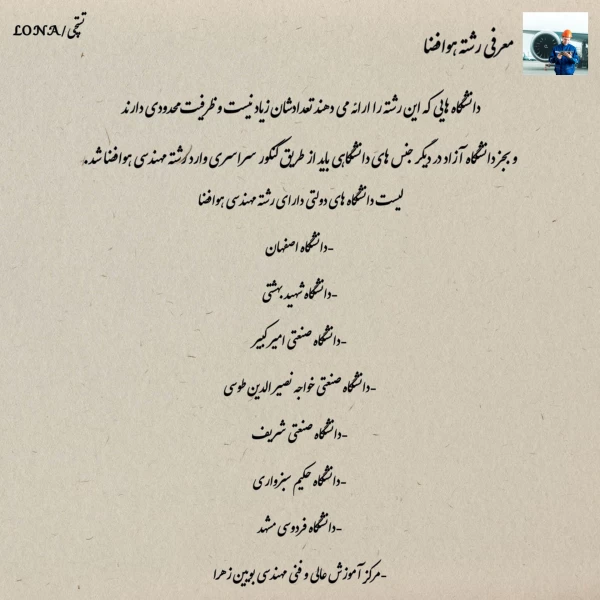 تستچی/LONA
معرفی رشته هوافضا
دانشگاه هایی که این رشته را ارائه می دهند تعدادشان زیاد نیست و ظرفیت محدودی دارند
و بجز دانشگاه آزاد در دیگر جنس های دانشگاهی باید از طریق کنکور سراسری وارد رشته مهندسی هوافضا شد.
لیست دانشگاه های دولتی دارای رشته مهندسی هوافضا
-دانشگاه اصفهان
-دانشگاه شهید بهشتی
-دانشگاه صنعتی امیر کبیر
-دانشگاه صنعتی خواجه نصیر الدین طوسی
-دانشگاه صنعتی شریف
-دانشگاه حکیم سبزواری
-دانشگاه فردوسی مشهد
-مرکز آموزش عالی و فنی مهندسی بویین زهرا